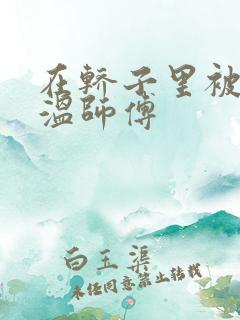 在轿子里被
温師傅
白玉渠
未经同意禁止转载